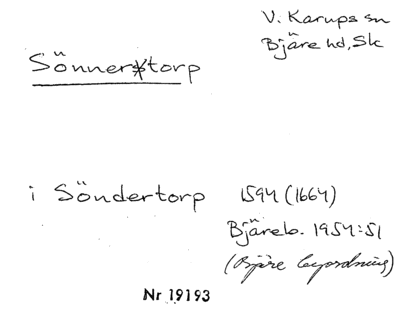 V. Karups sn
Bjäre hd, Sk
Sönnertorp
i Söndertorp 1594 (1664)
Bjäreb. 1954:51
(Bjäre byordning)
Nr 19193